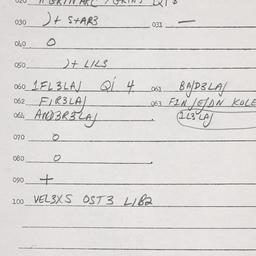 030 )+ STAR3 031 —
040 O
050 )+ LILS
060 1FL3LAJ Qi 4 061 BAJD3LAJ
062 FIR3LAJ 063 FIN JEJDN KOLE
064 AND3R3LAJ (IL3LAJ)
070 O
080 O
090 +
100 VEL3XS OST3 LIB2